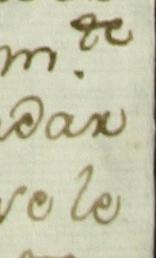 m.te
dar
ve le